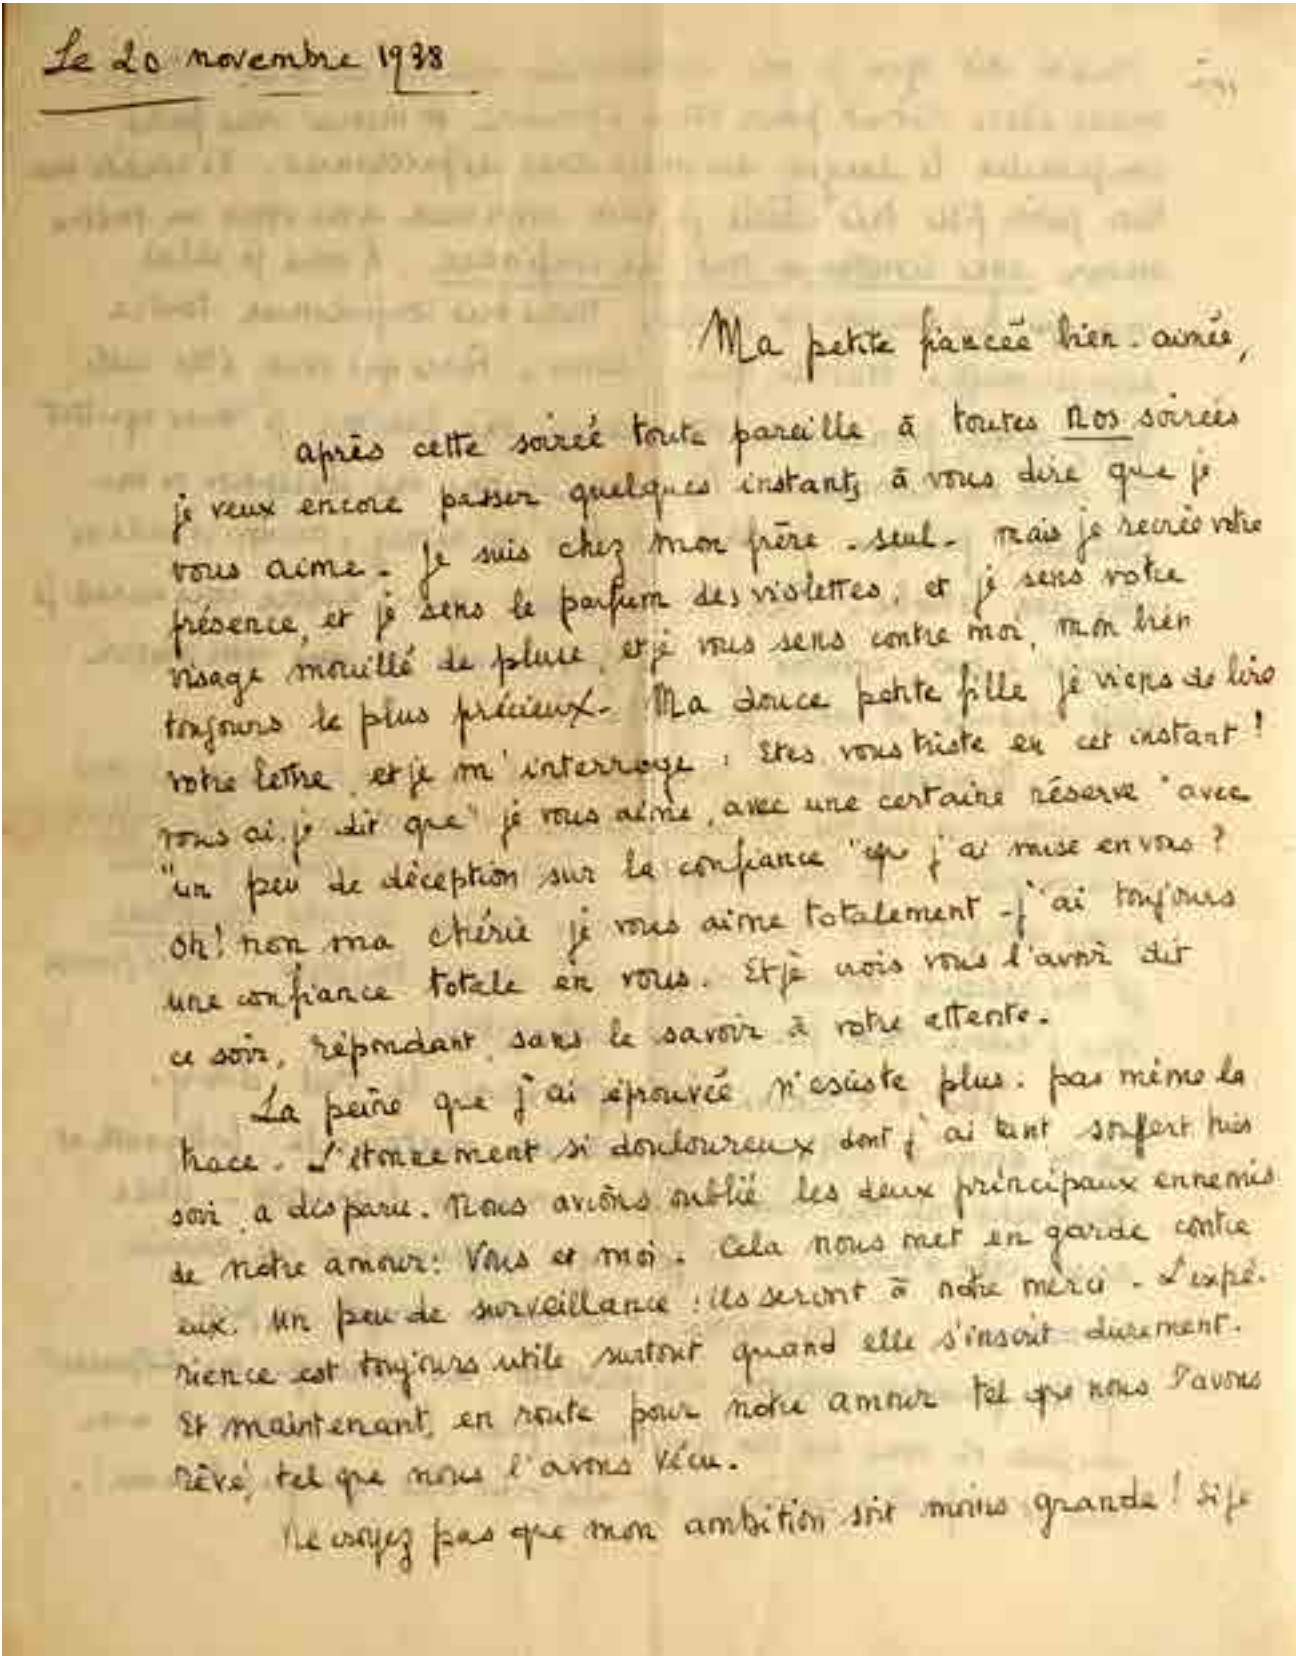 Le 20 novembre 1938
Ma petite fiancée bien-aimée,
après cette soirée toute pareille à toutes nos soirées
je veux encore passer quelques instants à vous dire que je
vous aime. Je suis chez mon frère - seul - mais je recrée votre
présence, et je sens le parfum des violettes, et je sens votre
visage mouillé de pluie, et je vous sens contre moi, mon bien
toujours le plus précieux. Ma douce petite fille je viens de lire
votre lettre, et je m'interroge : Etes vous triste en cet instant !
vous ai-je dit que "je vous aime, avec une certaine réserve" avec
"un peu de déception sur la confiance" que j'ai mise en vous ?
Oh ! non ma chérie je vous aime totalement - j'ai toujours
une confiance totale en vous. Et je crois vous l'avoir dit
ce soir, répondant, sans le savoir à votre attente.
La peine que j'ai éprouvée n'existe plus. pas même la
trace. L'étonnement si douloureux dont j'ai tant souffert hier
soir, a disparu. Nous avions oublié les deux principaux ennemis
de notre amour : Vous et moi. Cela nous met en garde contre
eux. Un peu de surveillance : ils seront à notre merci - L'expé-
rience est toujours utile surtout quand elle s'inscrit durement.
Et maintenant, en route pour notre amour tel que nous l'avons
rêvé, tel que nous l'avons vécu.
Ne croyez pas que mon ambition soit moins grande ! Si je